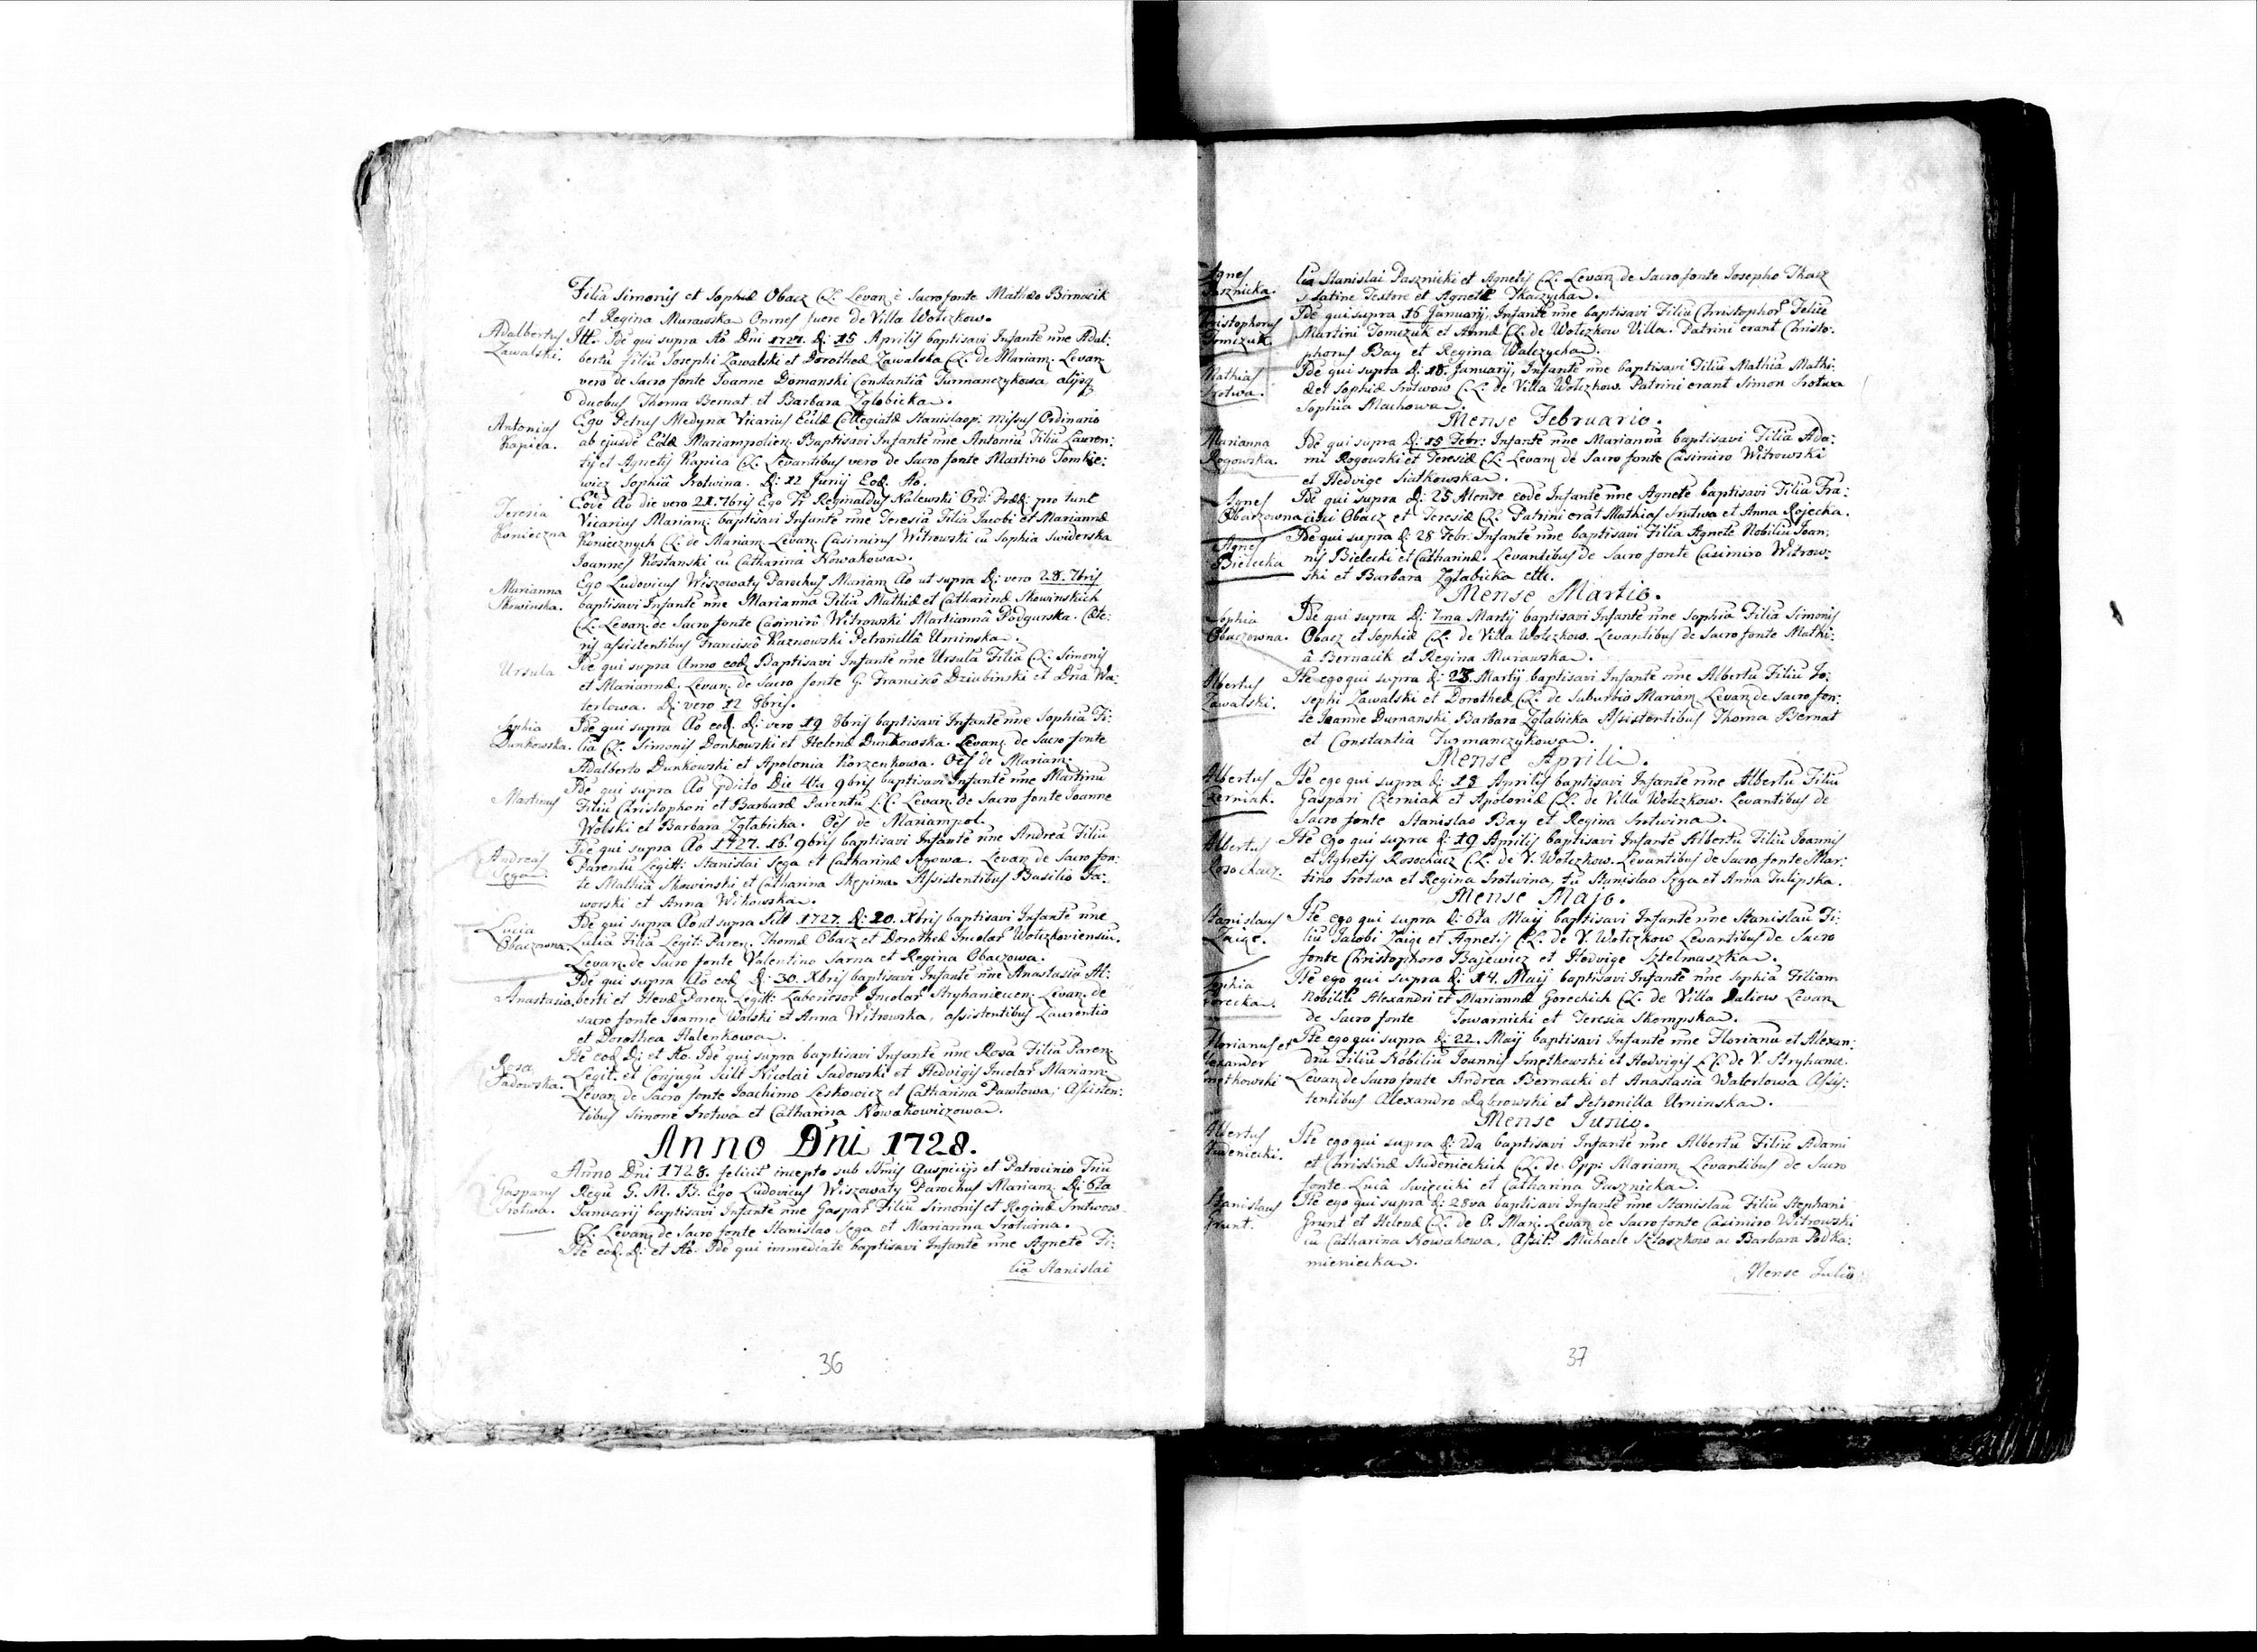 Filia Simonis et Sophiæ Obacz C.L. Levan: è Sacro fonte Mathæo Birnacik
et Regina Murawska Omnes fuere de Villa Wotczkow.
Adalbertus Zawalski.
Itt. Ide qui supra Ao Dni 1727. D: 15 Aprilis baptisavi Infante nne Adal:
bertu filiu Josephi Zawalski et Dorotheæ Zawalska C.L. de Mariam: Levan
vero de Sacro fonte Joanne Domanski Constantiâ Furmanczykowa alijsq
duobus Thoma Bernat et Barbara Zglobicka.
Antonius Kapica.
Ego Petrus Medyna Vicarius Eccl̄æ Collegiatæ Stanislaop: missus Ordinario
ab ejusdē Eccl̄æ Mariampolien: Baptisavi Infante nne Antoniu Filiu Lauren:
tij et Agnetis Kapica C.L. Levantibus vero de Sacro fonte Martino Tomkie:
wicz Sophiâ Srotwina. D: 12 Junij Eod: Ao.
Teresia Konieczna
Eodē Ao die vero 21. 7bris Ego Fr Reginaldus Nalewski Ord: Præd: pro tunc
Vicarius Mariam: baptisavi Infante nne Teresia Filia Jacobi et Mariannæ
Koniecznych C.L. de Mariam. Levan. Casimirus Witrowski cu Sophia Swiderska
Joannes Kostanski cu Catharina Nowakowa.
Marianna Skowinska.
Ego Ludovicus Wiszowaty Parochus Mariam Ao ut supra D: vero 28. 7bris
baptisavi Infante nne Marianna Filia Mathiæ et Catharinæ Skowinskich
C.L. Levan. de Sacro fonte Casimirô Witrowski Martiannâ Podgurska. Cæte:
ris assistentibus Franciscô Kaznowski Petronillâ Uminska.
Ursula
Ide qui supra Anno eod Baptisavi Infante nne Ursula Filia C.L. Simonis
et Mariannæ. Levan. de Sacro fonte G. Franciscô Dziubinski et Dna Wa:
terlowa. D: vero 12 8bris.
Sophia Dunkowska.
Ide qui supra Ao eod. D: vero 19 8bris baptisavi Infante nne Sophia Fi:
lia C.L. Simonis Donkowski et Helenæ Dunkowska. Levan. de Sacro fonte
Adalberto Dunkowski et Apolonia Korzenkowa. Oēs de Mariam.
Martinus
Ide qui supra Ao pdito Die 4ta 9bris baptisavi Infante nne Martinu
Filiu Christophori et Barbaræ Parentu L.C. Levan. de Sacro fonte Joanne
Wolski et Barbara Zglabicka. Oēs de Mariampol.
Andreas Sęga.
Ide qui supra Ao 1727. 16. 9bris baptisavi Infante nne Andrea Filiu
Parentu Legitt: Stanislai Sęga et Catharinæ Sęgowa. Levan de Sacro fon:
te Mathia Skowinski et Catharina Skępina. Assistentibus Basilio Ja:
worski et Anna Witkowska.
Lucia Obaczowna.
Ide qui supra Ao ut supra Silt 1727. D: 20. Xbris baptisavi Infante nne
Lucia Filia Legit: Paren. Thomæ Obacz et Dorotheæ Incolar Wotczkoviensiu.
Levan. de Sacro fonte Valentino Sarna et Regina Obaczowa.
Anastasia
Ide qui supra Ao eod. D: 30. Xbris baptisavi Infante nne Anastasia Al:
berti et Hevæ Paren. Legitt: Laboriosor Incolar Stryhaniecen: Levan. de
sacro fonte Joanne Wolski et Anna Witrowska, assistentibus Laurentio
et Dorothea Halenkowa.
Rosa Sadowska.
Ite eod. D: et Ao. Ide qui supra baptisavi Infante nne Rosa Filia Paren
Legit. et Conjugu Silt Nicolai Sadowski et Hedvigis Incolar Mariam:
Levan de Sacro fonte Joachimo Leskowicz et Catharina Pawlowa; Assisten:
tibus Simone Srotwa et Catharina Nowakowiczowa.
Anno Dni 1728.
Gasparus Srotwa.
Anno Dni 1728. felicit incepto sub Stmis Auspicijs et Patrocinio Triu
Regu G. M. B. Ego Ludovicus Wiszowaty Parochus Mariam D: 6ta
Januarij baptisavi Infante nne Gaspar Filiu Simonis et Reginæ Srotwow
C.L. Levan. de Sacro fonte Stanislao Sęga et Marianna Srotwina.
Ite eod. D: et Ao. Ide qui immediate baptisavi Infante nne Agnete Fi:
lia Stanislai
36
Agnes Pasznicka.
lia Stanislai Pasznicki et Agnetis C.L. Levan de Sacro fonte Josepho Tkacz
Latine Textore et Agnete Tkaczycka.
Christophorus Tomczuk
Ide qui supra 16 Januarij, Infante nne baptisavi Filiu Christophor Felice
Martini Tomczuk et Annæ C.L. de Wotczkow Villa. Patrini erant Christo:
phorus Bay et Regina Walczycha.
Mathias Srotwa.
Ide qui supra D: 18. Januarij, Infante nne baptisavi Filiu Mathia Mathi:
æ et Sophiæ Srotwow C.L. de Villa Wotczkow. Patrini erant Simon Srotwa
Sophia Machowa.
Mense Februario.
Marianna Rogowska.
Ide qui supra D: 15 Febr: Infante nne Marianna baptisavi Filia Ada:
mi Rogowski et Teresiæ C.L. Levan de Sacro fonte Casimiro Witrowski
et Hedvige Siatkowska.
Agnes Obaczowna
Ide qui supra D: 25 Mense eode Infante nne Agnete baptisavi Filia Fra:
cisci Obacz et Teresiæ C.L. Patrini erat Mathias Srotwa et Anna Rojecka.
Agnes Bielecka
Ide qui supra D: 28 Febr. Infante nne baptisavi Filia Agnete Nobiliu Joan:
nis Bielecki et Catharinæ. Levantibus de Sacro fonte Casimiro Witrow:
ski et Barbara Zglabicka ett.
Mense Martio.
Sophia Obaczowna.
Ide qui supra D: 7ma Martij baptisavi Infante nne Sophia Filia Simonis
Obacz et Sophiæ C.L. de Villa Wotczkow. Levantibus de Sacro fonte Mathi:
â Bernacik et Regina Murawska.
Albertus Zawalski.
Ite ego qui supra D: 23. Martij baptisavi Infante nne Albertu Filiu Jo:
sephi Zawalski et Dorotheæ C.L. de Suburbio Mariam Levan de sacro fon:
te Joanne Dumanski, Barbara Zglabicka Assistentibus Thoma Bernat
et Constantia Furmanczykowa.
Mense Aprili.
Albertus Czerniak.
Ite ego qui supra D: 18 Aprilis baptisavi Infante nne Albertu Filiu
Gaspari Czerniak et Apoloniæ C.L. de Villa Wotczkow. Levantibus de
Sacro fonte Stanislao Bay et Regina Srotwina.
Albertus Rosochacz
Ite Ego qui supra D: 19 Aprilis baptisavi Infante Albertu Filiu Joannis
et Agnetis Rosochacz C.L. de V. Wotczkow. Levantibus de Sacro fonte Mar:
tino Srotwa et Regina Srotwina, tu Stanislao Sęga et Anna Tulipska.
Mense Majo.
Stanislaus Zaige.
Ite ego qui supra D: 6ta Maij baptisavi Infante nne Stanislau Fi:
liu Jacobi Zaige et Agnetis C.L. de V. Wotczkow Levantibus de Sacro
fonte Christophoro Bajewicz et Hedvige Sztelmaszka.
Sophia Gorecka.
Ite ego qui supra D: 14. Maij baptisavi Infante nne Sophia Filiam
Nobiliu Alexandri et Mariannæ Goreckich C.L. de Villa Daliow Levan
de Sacro fonte Towarnicki et Teresia Skompska.
Florianus et Alexander Smętkowski
Ite ego qui supra D: 22. Maij baptisavi Infante nne Florianu et Alexan:
dru Filiu Nobiliu Joannis Smętkowski et Hedvigis C.L. de V. Stryhanc.
Levan de Sacro fonte Andrea Bernacki et Anastasia Waterlowa Assis:
tentibus Alexandro Dąbrowski et Petronilla Uminska.
Mense Junio.
Albertus Studeniecki.
Ite ego qui supra D: 2da baptisavi Infante nne Albertu Filiu Adami
et Christinæ Studenieckich C.L. de Opp: Mariam Levantibus de Sacro
fonte Lucâ Swięcicki et Catharina Pasznicka.
Stanislaus Grunt.
Ite ego qui supra D: 28va baptisavi Infante nne Stanislau Filiu Stephani
Grunt et Helenæ C.L. de O. Mar. Levan. de Sacro fonte Casimiro Witrowski
cu Catharina Nowakowa, Assit: Michaele Sztaszkow ac Barbara Podka:
mieniecka.
Mense Julio
37